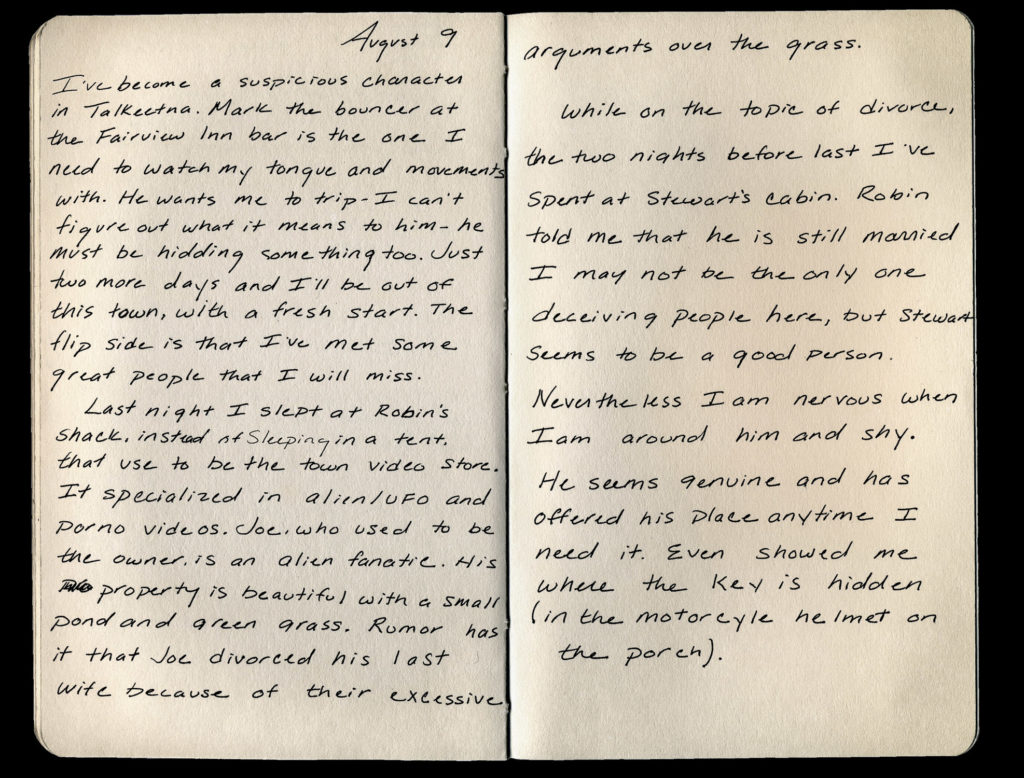 August 9
I've become a suspicious character
in Talkeetna. Mark the bouncer at
the Fairview Inn bar is the one I
need to watch my tongue and movements
with. He wants me to trip-I can't
figure out what it means to him-he
must be hidding something too. Just
two more days and I'll be out of
this town, with a fresh start. The
flip side is that I've met some
great people that I will miss.
Last night I slept at Robin's
shack, instead of Sleeping in a tent.
that use to be the town video store.
It specialized in alien/UFO and
porno videos. Joe, who used to be
the owner, is an alien fanatic. His
property is beautiful with a small
pond and green grass. Rumor has
it that Joe divorced his last
wife because of their excessive
arguments over the grass.
While on the topic of divorce,
the two nights before last I've
spent at Stewart's cabin. Robin
told me that he is still married
I may not be the only one
deceiving people here, but Stewart
seems to be a good person.
Nevertheless I am nervous when
I am around him and shy.
He seems genuine and has
offered his place anytime I
need it. Even showed me
where the key is hidden
(in the motorcyle helmet on
the porch).